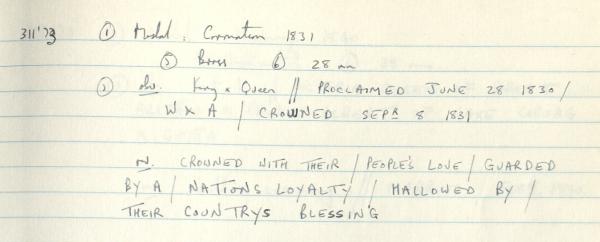 311'73 ① Medal: Coronation 1831
⑤ Brass ⑥ 28 mm
② obv. King & Queen // PROCLAIMED JUNE 28 1830 /
W & A / CROWNED SEPR 8 1831
CROWNED WITH THEIR / PEOPLE'S LOVE / GUARDED
BY A / NATIONS LOYALTY / HALLOWED BY /
THEIR COUNTRYS BLESSING